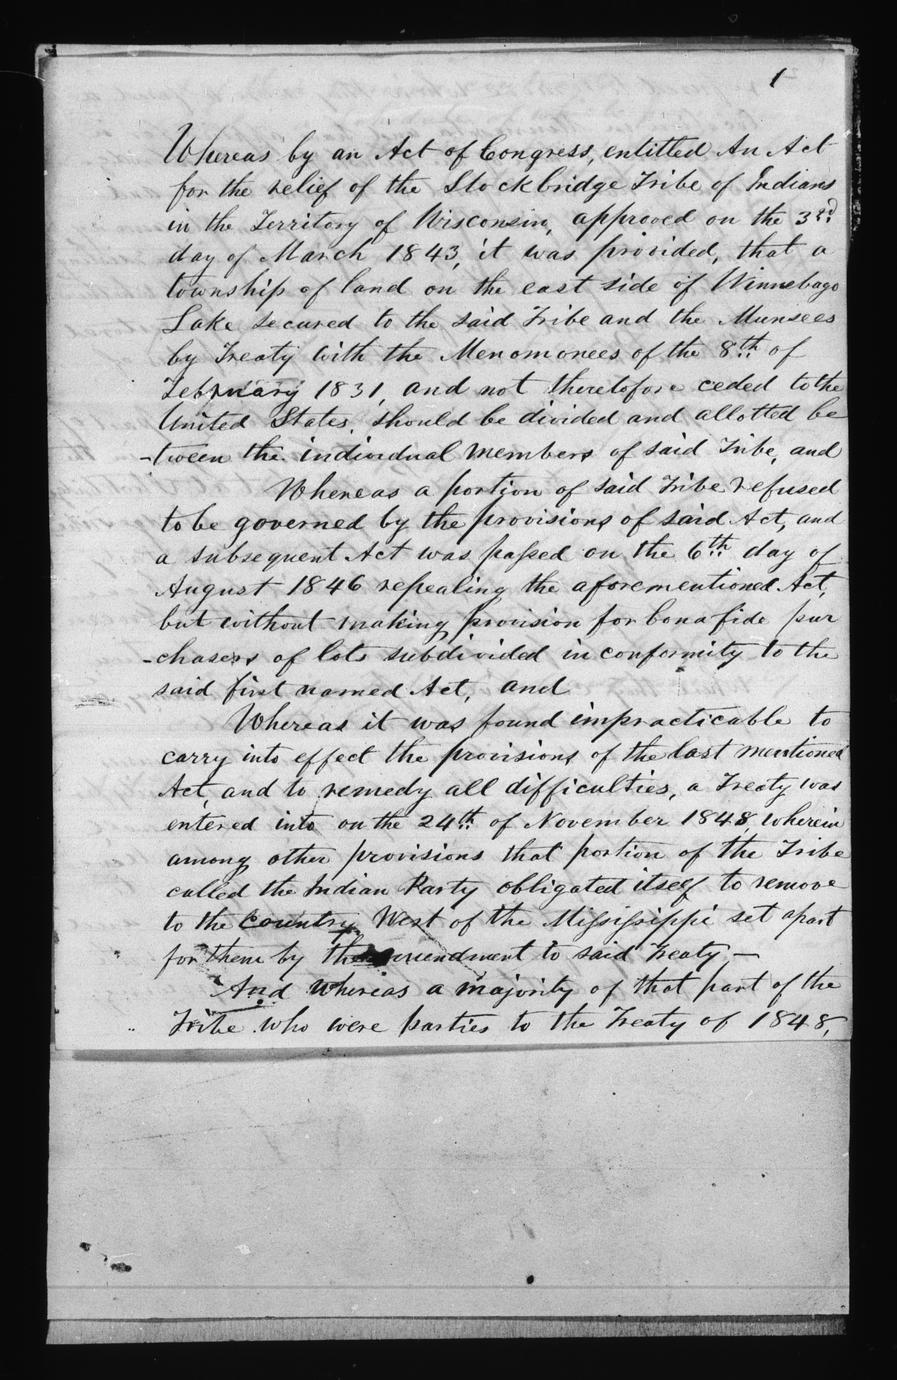 1
Whereas by an Act of Congress, entitled An Act
for the relief of the Stockbridge Tribe of Indians
in the Territory of Wisconsin, approved on the 3rd
day of March 1843, it was provided, that a
township of land on the east side of Winnebago
Lake secured to the said Tribe and the Munsees
by Treaty with the Menomonees of the 8th of
February 1831, and not theretofore ceded to the
United States, should be divided and allotted be
-tween the individual members of said Tribe, and
Whereas a portion of said Tribe refused
to be governed by the provisions of said Act, and
a subsequent Act was passed on the 6th day of
August 1846 repealing the aforementioned Act,
but without making provision for bonafide pur
-chasers of lots subdivided in conformity to the
said first named Act, and
Whereas it was found impracticable to
carry into effect the provisions of the last mentioned
Act, and to remedy all difficulties, a Treaty was
entered into on the 24th of November 1848, wherein
among other provisions that portion of the Tribe
called the Indian Party obligated itself to remove
to the country West of the Mississippi set apart
for them by the amendment to said Treaty —
And whereas a majority of that part of the
Tribe who were parties to the Treaty of 1848,